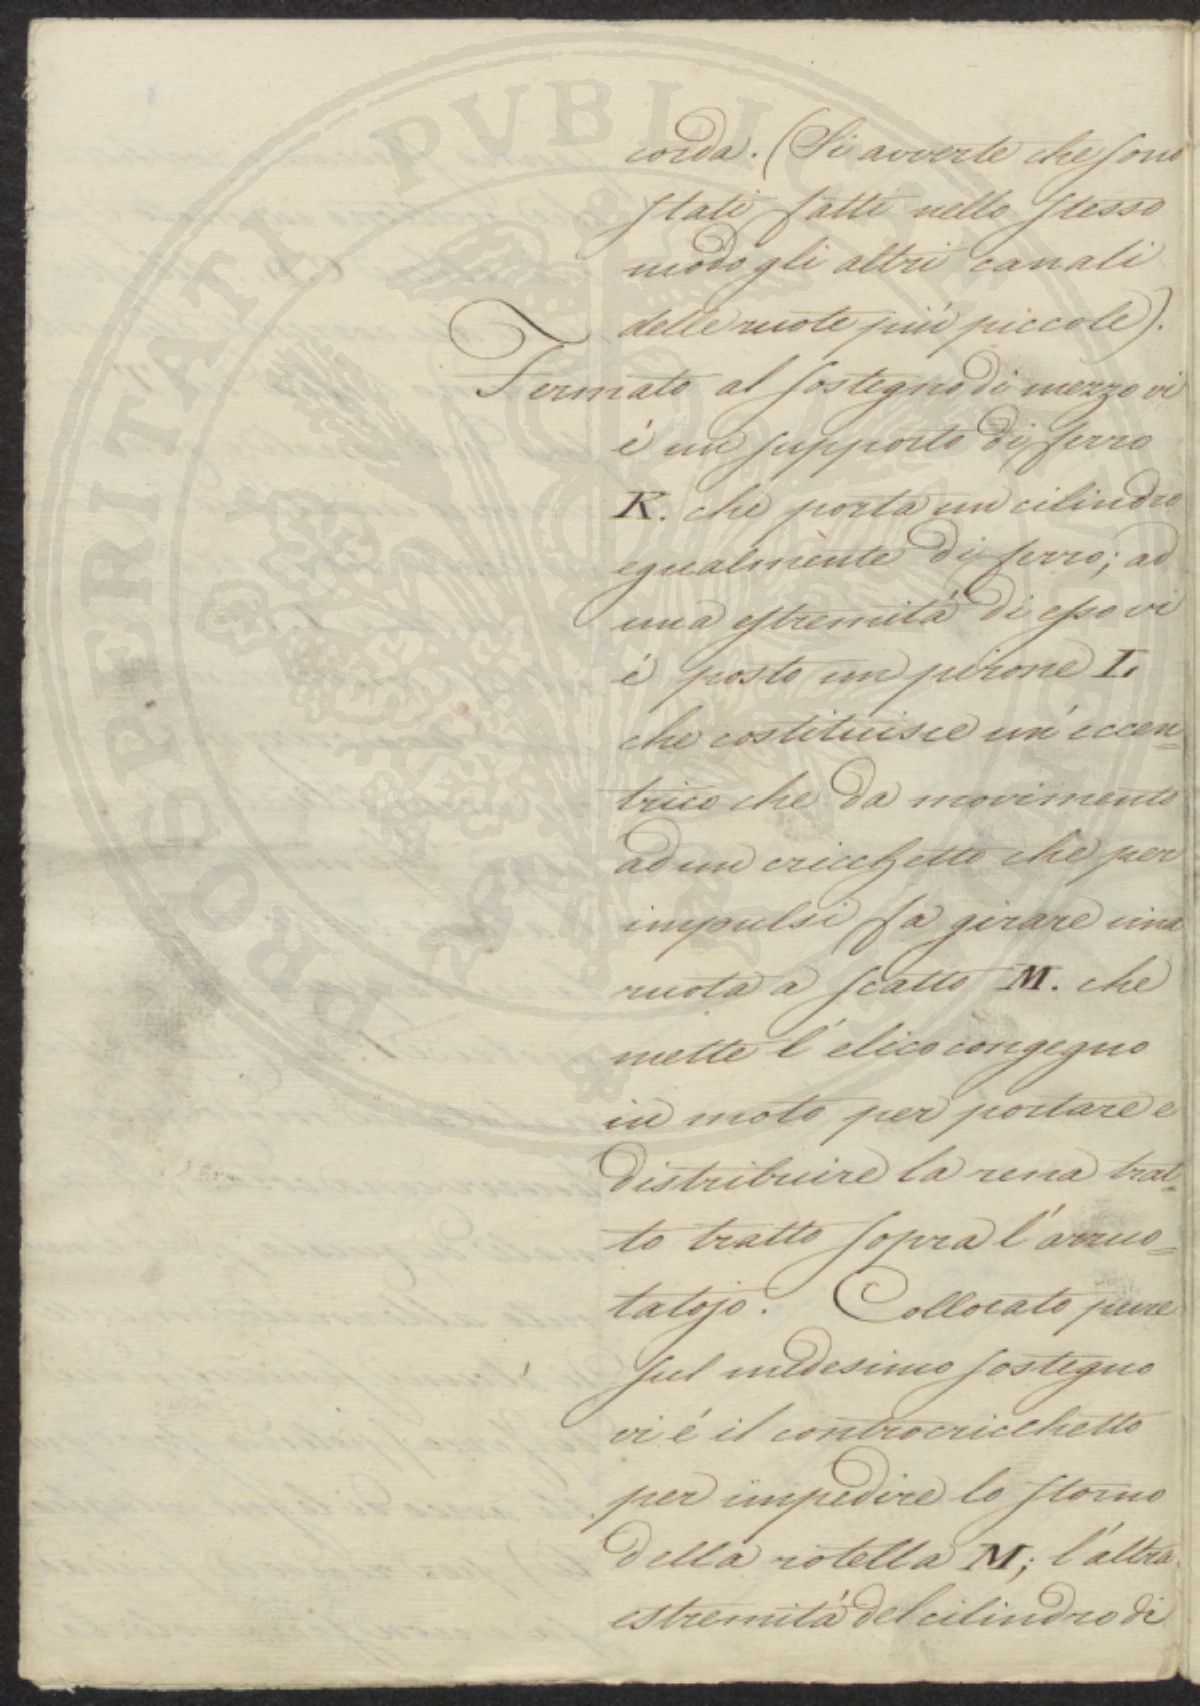 corda. (Si avverte che sono
stati fatti nello stesso
modo gli altri canali
delle ruote più piccole).
Fermato al sostegno di mezzo vi
è un supporto di ferro
K. che porta un cilindro
egualmente di ferro; ad
una estremità di esso vi
è posto un pirone L.
che costituisce un'eccen=
trico che da movimento
ad un cricchetto che per
impulsi fa girare una
ruota a scatto M. che
mette l'elico congegno
in moto per portare e
distribuire la rena trat=
to tratto sopra l'arruo=
tatojo. Collocato pure
sul medesimo sostegno
vi é il controcricchetto
per impedire lo storno
della rotella M; l'altra
estremitá del cilindro di
PROSPERITATI PVBLICAE